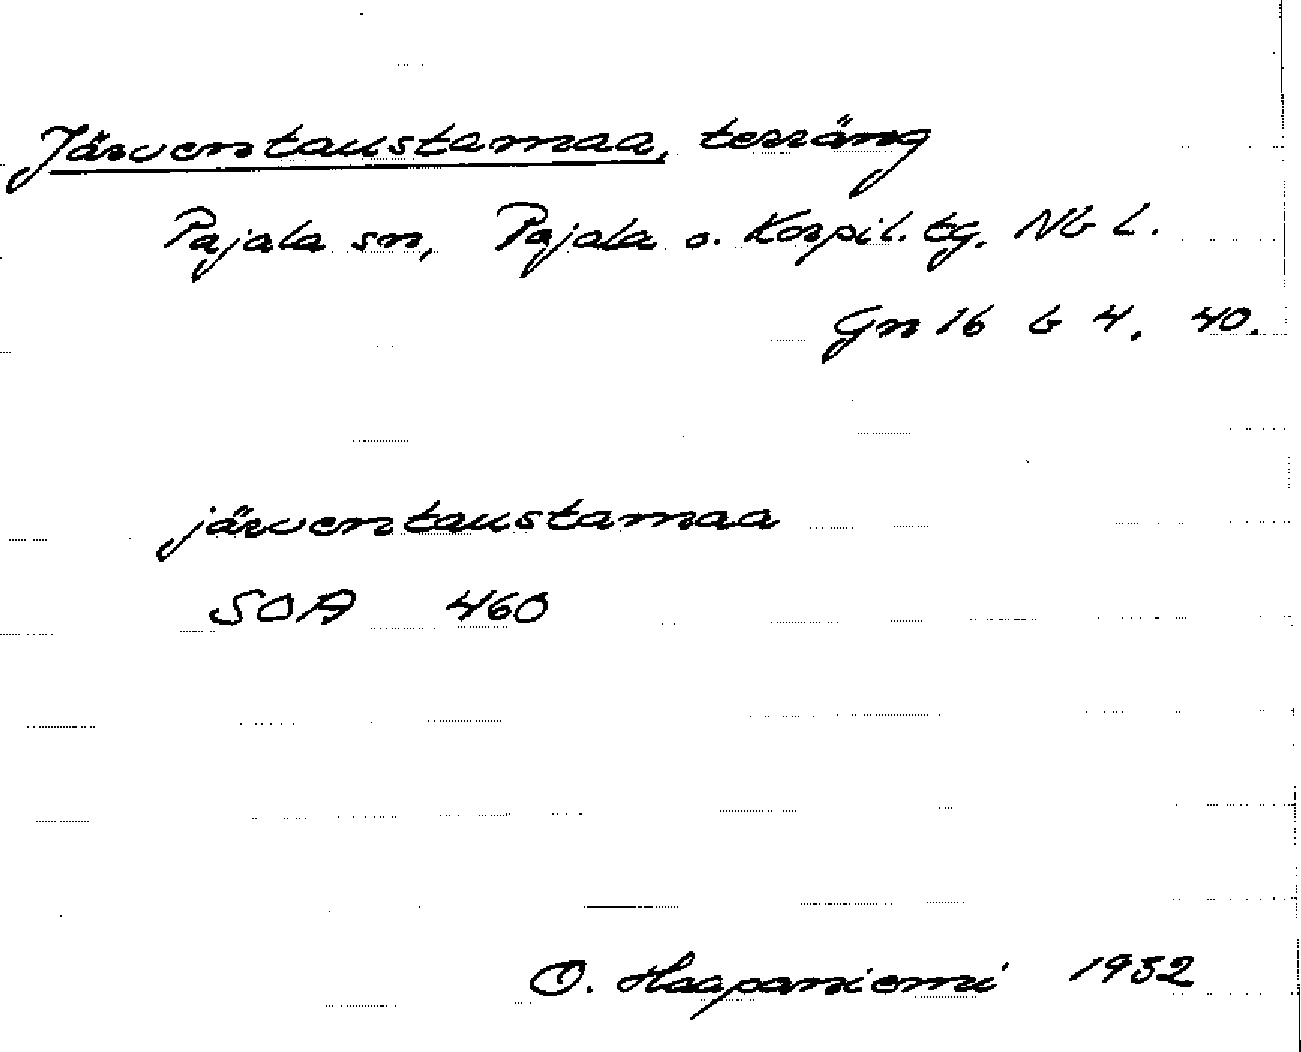 Järventaustamaa, terräng
Pajala sn, Pajala o. Korpil. tg. Nb L.
Gn 16 b 4, 40.
järventaustamaa
SOA 460
O. Haapaniemi 1932